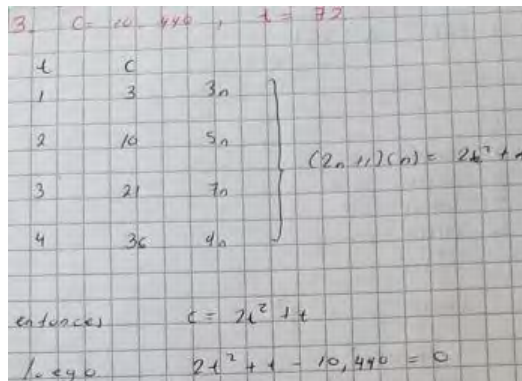 3. C = 10 440 , t = 72
t C
1 3 3n
2 10 5n
3 21 7n
(2n +1)(n) = 2t² + n
4 36 9n
entonces C = 2t² + t
Luego 2t² + t - 10,440 = 0